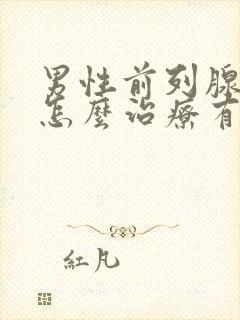 男性前列腺
怎麼治療有
紅凡